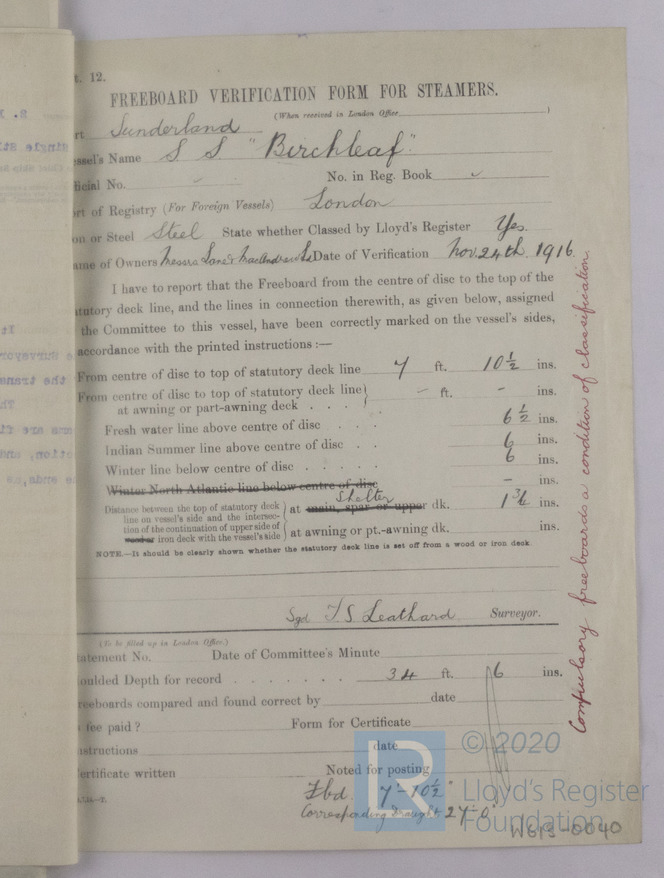 t. 12.
FREEBOARD VERIFICATION FORM FOR STEAMERS.
(When received in London Office )
rt Sunderland
essel's Name S S "Birchleaf"
ficial No. - No. in Reg. Book
rt of Registry (For Foreign Vessels) London
on or Steel Steel State whether Classed by Lloyd's Register Yes.
ame of Owners Messrs Lane & Date of Verification Nov. 24th 1916
I have to report that the Freeboard from the centre of disc to the top of the
atutory deck line, and the lines in connection therewith, as given below, assigned
the Committee to this vessel, have been correctly marked on the vessel's sides,
accordance with the printed instructions :—
From centre of disc to top of statutory deck line 7 ft. 10 ½ ins.
From centre of disc to top of statutory deck line } - ft. - ins.
at awning or part-awning deck . . . .
Fresh water line above centre of disc . . . 6 ½ ins.
Indian Summer line above centre of disc . . 6 ins.
Winter line below centre of disc . . . . . 6 ins.
Winter North Atlantic line below centre of disc - ins.
Shelter
Distance between the top of statutory deck
line on vessel's side and the intersec-
tion of the continuation of upper side of
wood or iron deck with the vessel's side
at main, spar or upper dk. 1 ins.
at awning or pt.-awning dk. ins.
NOTE.—It should be clearly shown whether the statutory deck line is set off from a wood or iron deck
Sgd T. S. Leathard Surveyor.
(To be filled up in London Office.)
tatement No. Date of Committee's Minute
oulded Depth for record . . . . . . . 34 ft. 6 ins.
reeboards compared and found correct by date
fee paid ? Form for Certificate
structions date
ertificate written Noted for posting
Fbd. 7'-10½"
Corresponding draught 27'-0"
Compulsory freeboards a condition of classification
© 2020
Lloyd's Register
Foundation
W613-0040
LR
S.
ingle St
It
Surveyor
the trans
Th
ms are fi
tion, and
e ends, as